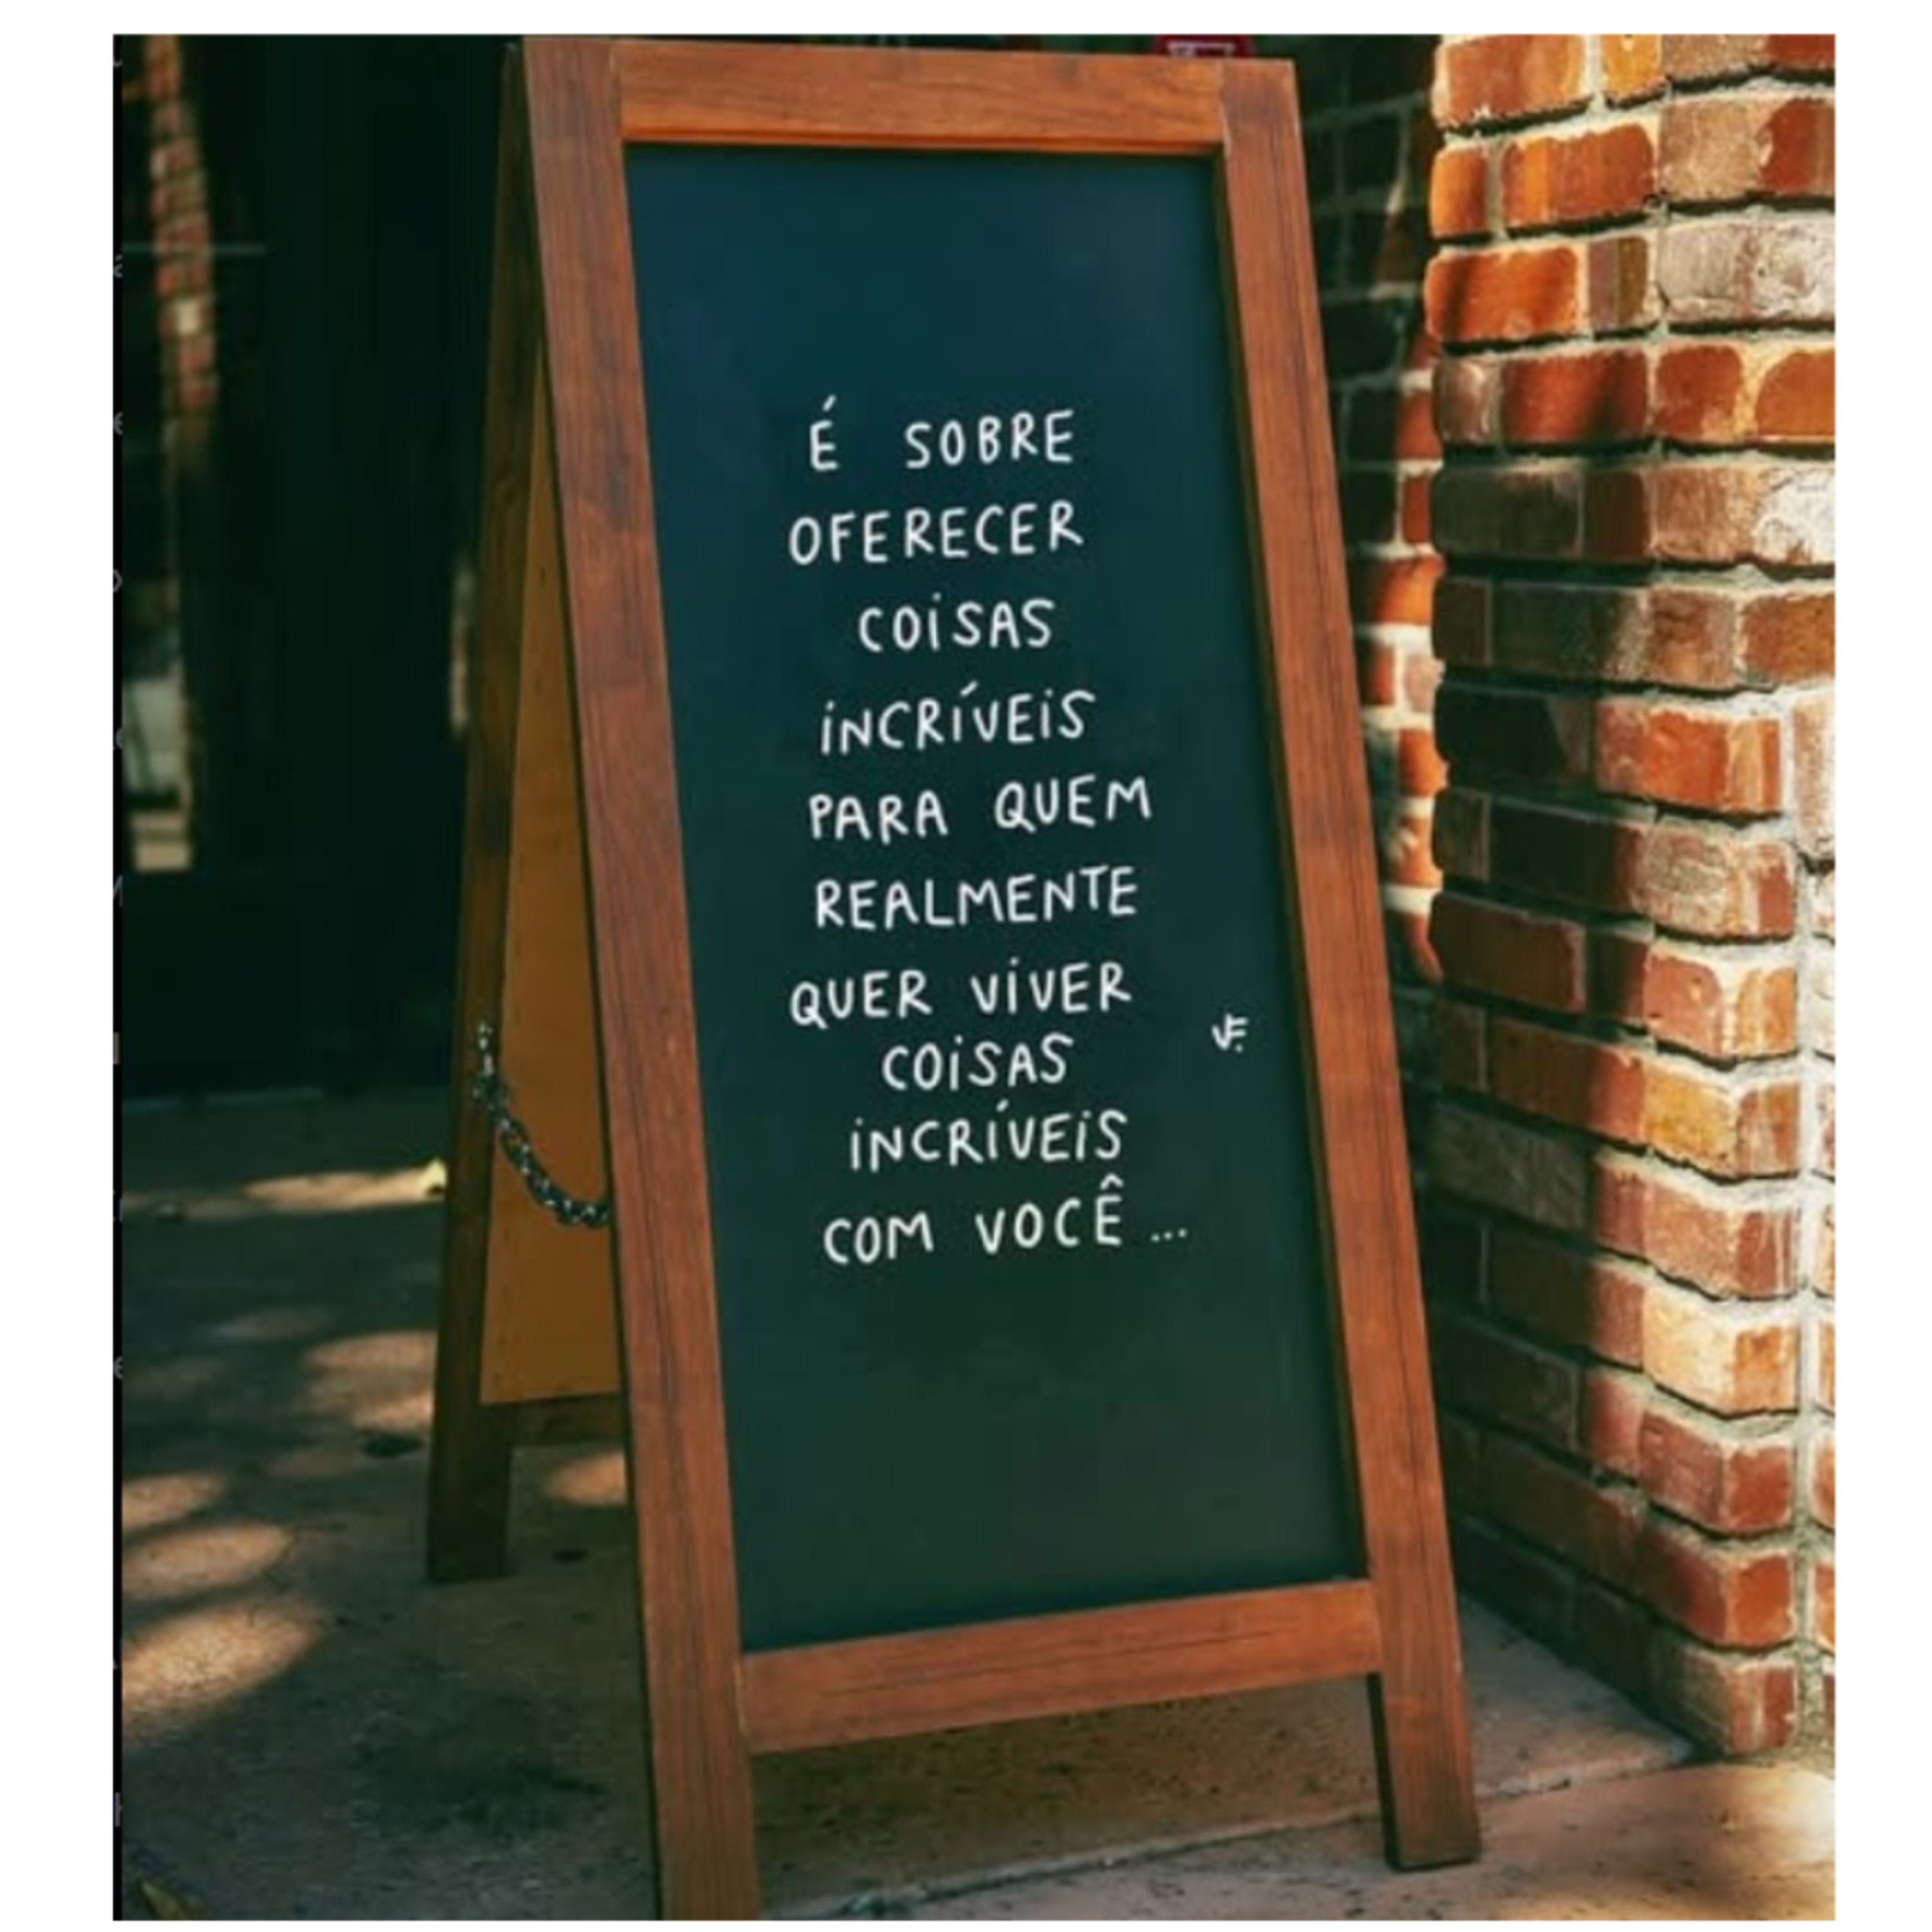 É SOBRE
OFERECER
COISAS
INCRÍVEIS
PARA QUEM
REALMENTE
QUER VIVER
COISAS
INCRÍVEIS
COM VOCÊ ...